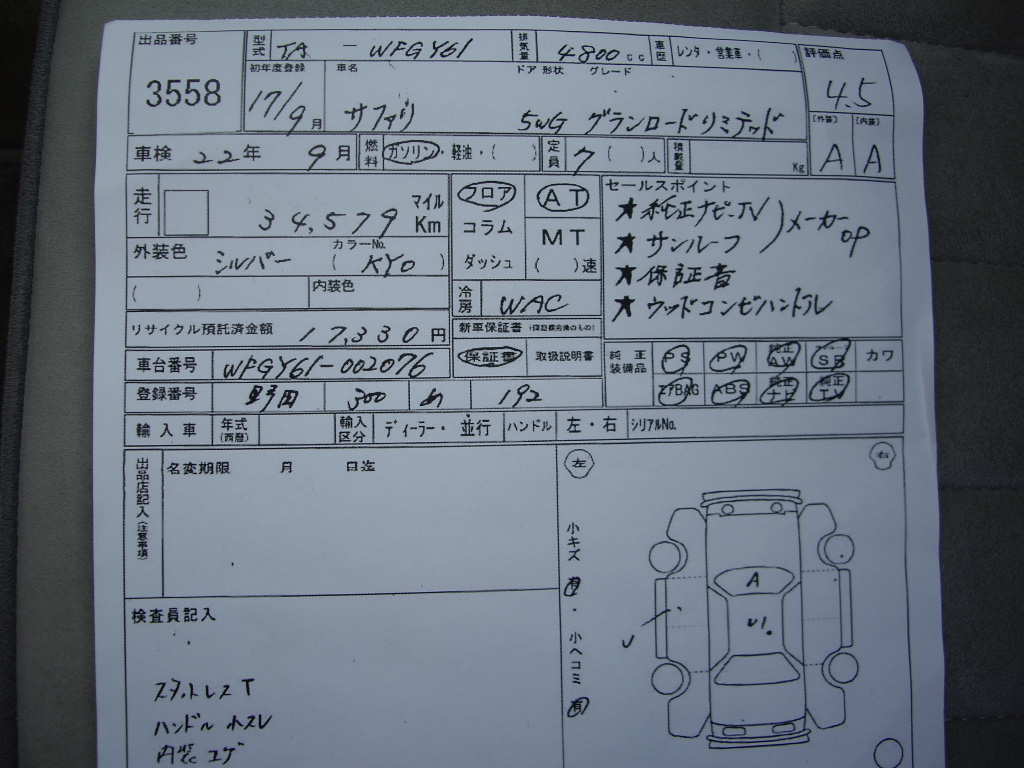 出品番号 型式 TA - WFGY61 排気量 4800cc 車歴 レンタ・営業車・( ) 評価点
3558 4.5
初年度登録 車名 ドア 形状 グレード
17/9月 サファリ 5WG グランロードリミテッド
[外装] [内装]
A A
車検 22年 9月 燃料 ガソリン・軽油・( ) 定員 7 ( )人 積載量 Kg
走行 34,579 マイル Km
フロア AT
コラム MT
ダッシュ ( )速
セールスポイント
★純正ナビ-TV
★サンルーフ
メーカーOP
★保証書
★ウッドコンビハンドル
外装色 シルバー カラーNo. ( KY0 )
( ) 内装色
冷房 WAC
リサイクル預託済金額 17,330円
新車保証書
保証書 取扱説明書
車台番号 WFGY61-002076
純正装備品 PS PW 純正AW SR カワ
エアBAG ABS 純正ナビ 純正TV
登録番号 野田 300 192
輸入車 年式(西暦) 輸入区分 ディーラー・並行 ハンドル 左・右 シリアルNo.
出品店記入(注意事項)
名変期限 月 日迄
左 右
小キズ 有・小ヘコミ 有
A
U1
U
検査員記入
スタットレスT
ハンドル ホスレ
内装 コゲ